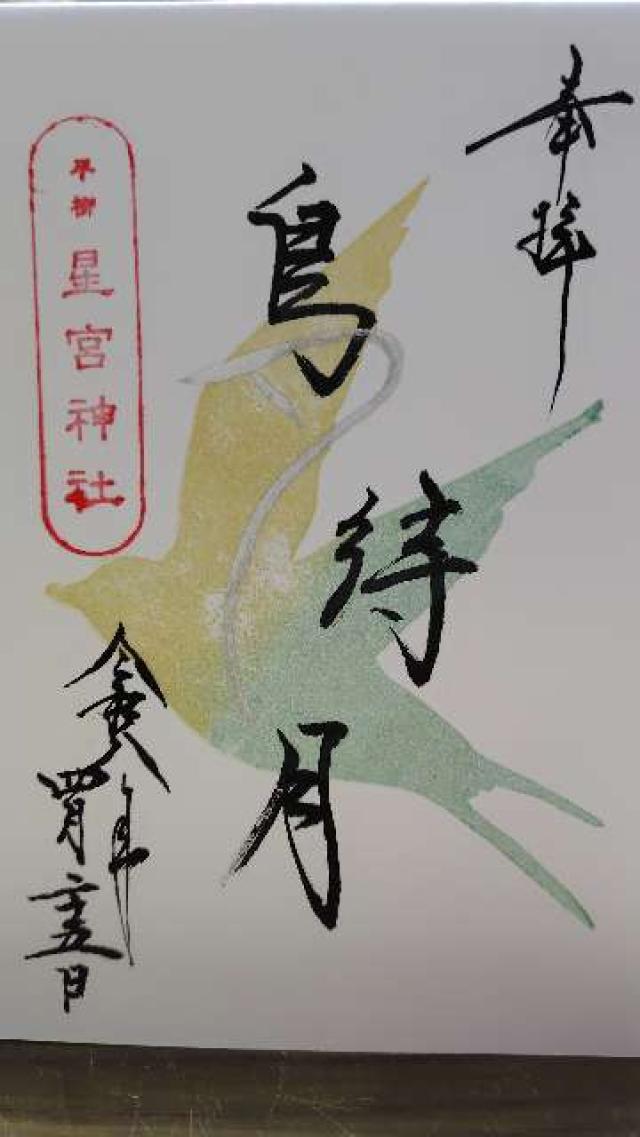 奉拝
鳥待月
平柳 星宮神社
令和 年
四月二十五日